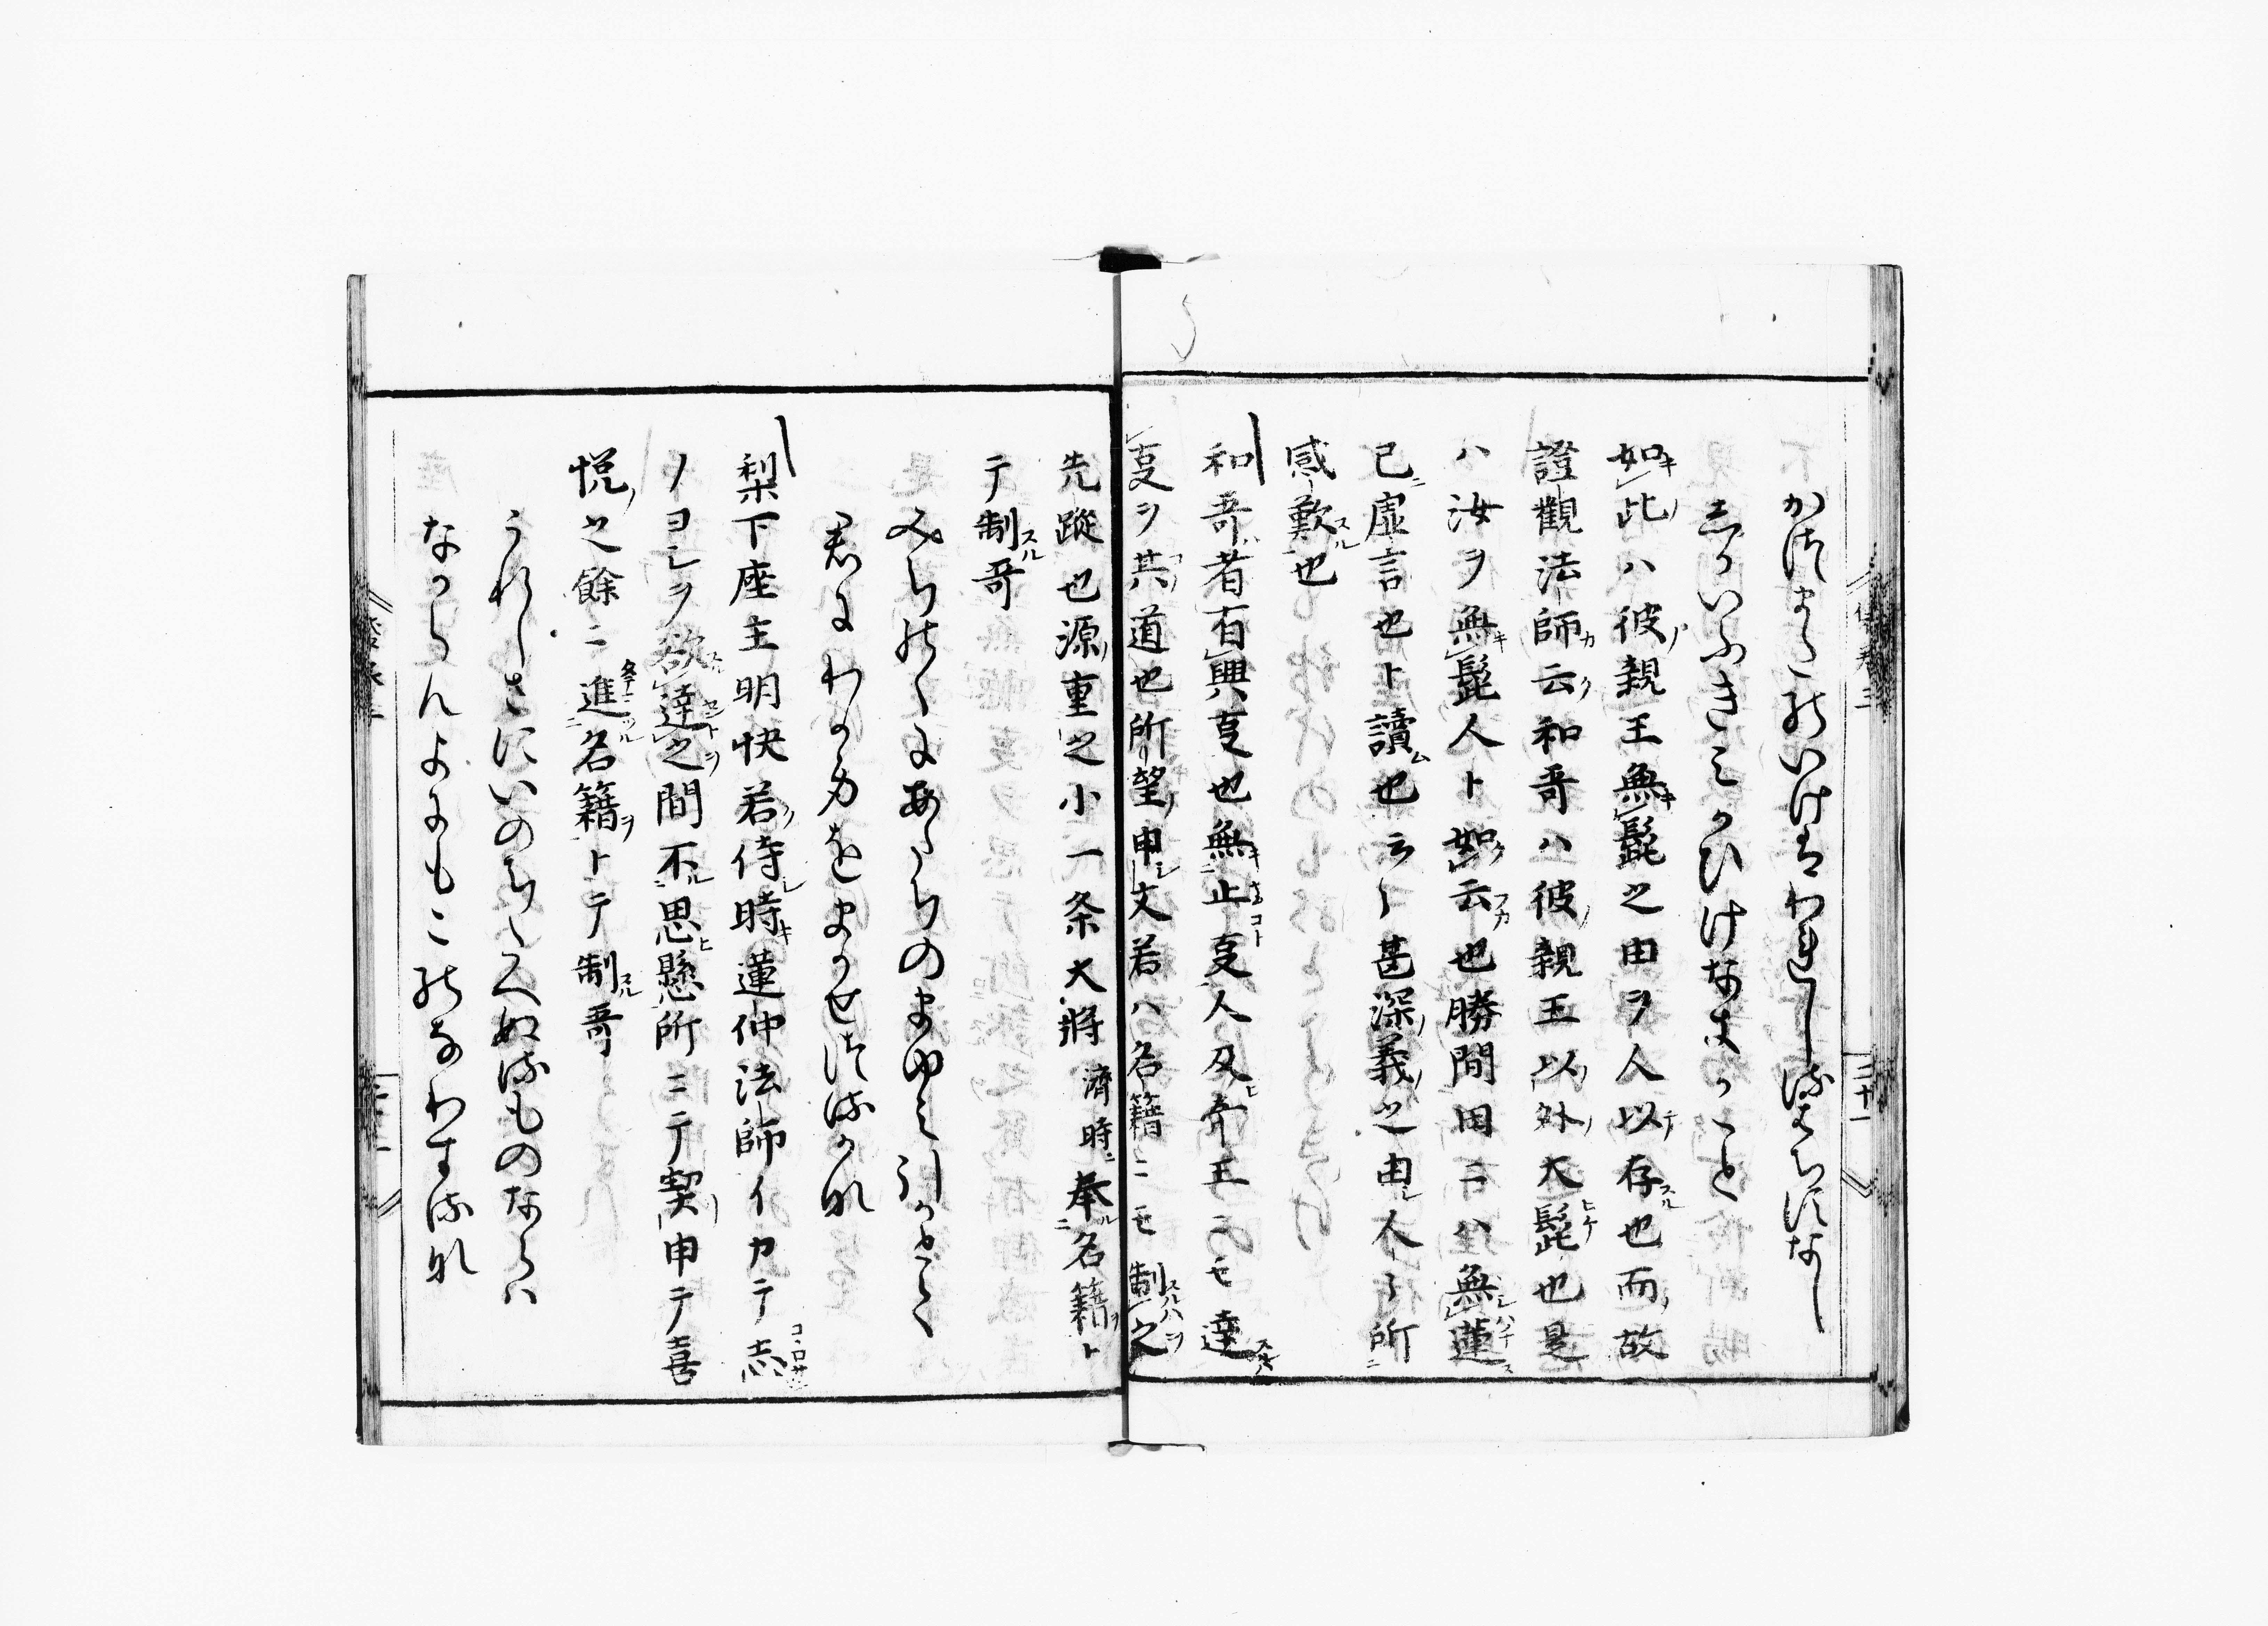 かつまたのいけはわれしるはちすなし
しかいふきみかひけなきかこと
如此ハ彼親王無髭之由ヲ人以存也而故
證觀法師云和哥ハ彼親王以外大髭也是
ハ汝ヲ無髭人ト如云也勝間田ニハ無蓮
已虚言也ト讀也云々甚深義之由人々所
感歎也
和哥者有興㕝也無止㕝人及帝王ニモ達
㕝ヲ其道也所望申文若ハ名籍ニモ制之
先蹤也源重之小一条大將濟時奉名籍ト
テ制哥
みちのくにあたちのまゆみ引かとて
君にわか身をまかせつるかな
梨下座主明快若侍時蓮仲法師イカテ志
ノヨシヲ欲達之間不思懸所ニテ契申テ喜
悦之餘ニ進名籍トテ制哥
うれしさにいのちたえぬるものならは
なからんよにもこのなわするな